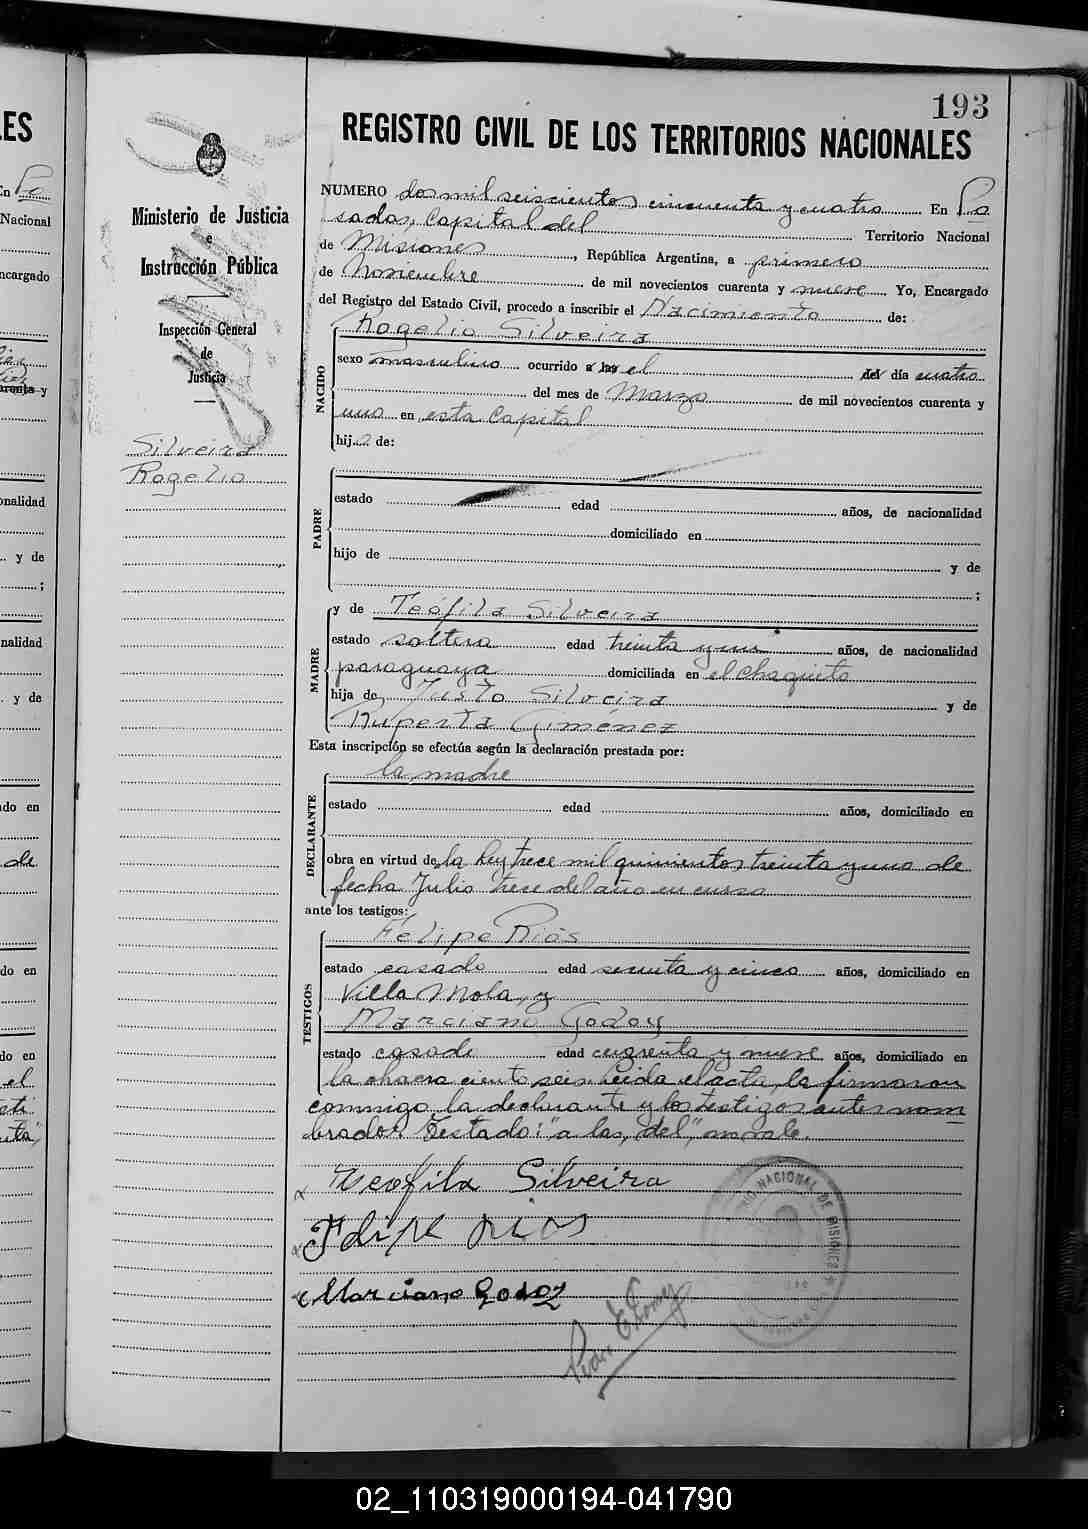 193
REGISTRO CIVIL DE LOS TERRITORIOS NACIONALES
Ministerio de Justicia
e
Instrucción Pública
Inspección General
de
Justicia
Silveira
Rogelio
NUMERO dos mil seiscientos cincuenta y cuatro En Po
sadas, Capital del Territorio Nacional
de Misiones, República Argentina, a primero
de Noviembre de mil novecientos cuarenta y nueve. Yo, Encargado
del Registro del Estado Civil, procedo a inscribir el Nacimiento de:
Rogelio Silveira
NACIDO
sexo masculino ocurrido a las el del día cuatro
del mes de Marzo de mil novecientos cuarenta y
uno en esta Capital
hijo de:
PADRE
estado edad años, de nacionalidad
domiciliado en
hijo de y de
;
y de Teófila Silveira
MADRE
estado soltera edad treinta y un años, de nacionalidad
paraguaya domiciliada en el Chaquito
hija de Justo Silveira y de
Ruperta Giménez
Esta inscripción se efectúa según la declaración prestada por:
la madre
DECLARANTE
estado edad años, domiciliado en
obra en virtud de la ley trece mil quinientos treinta y uno de
fecha Julio trece del año en curso
ante los testigos:
Felipe Ríos
TESTIGOS
estado casado edad sesenta y cinco años, domiciliado en
Villa Mola, y
Marciano Godoy
estado casado edad cuarenta y nueve años, domiciliado en
la chacra ciento seis. Leida el acta, la firmaron
conmigo la declarante y los testigos antes nom
brados. Testado: "a las, del", no vale.
Teofila Silveira
Felipe Rios
Marciano Godoy
NACIONAL DE MISIONES
02_110319000194-041790